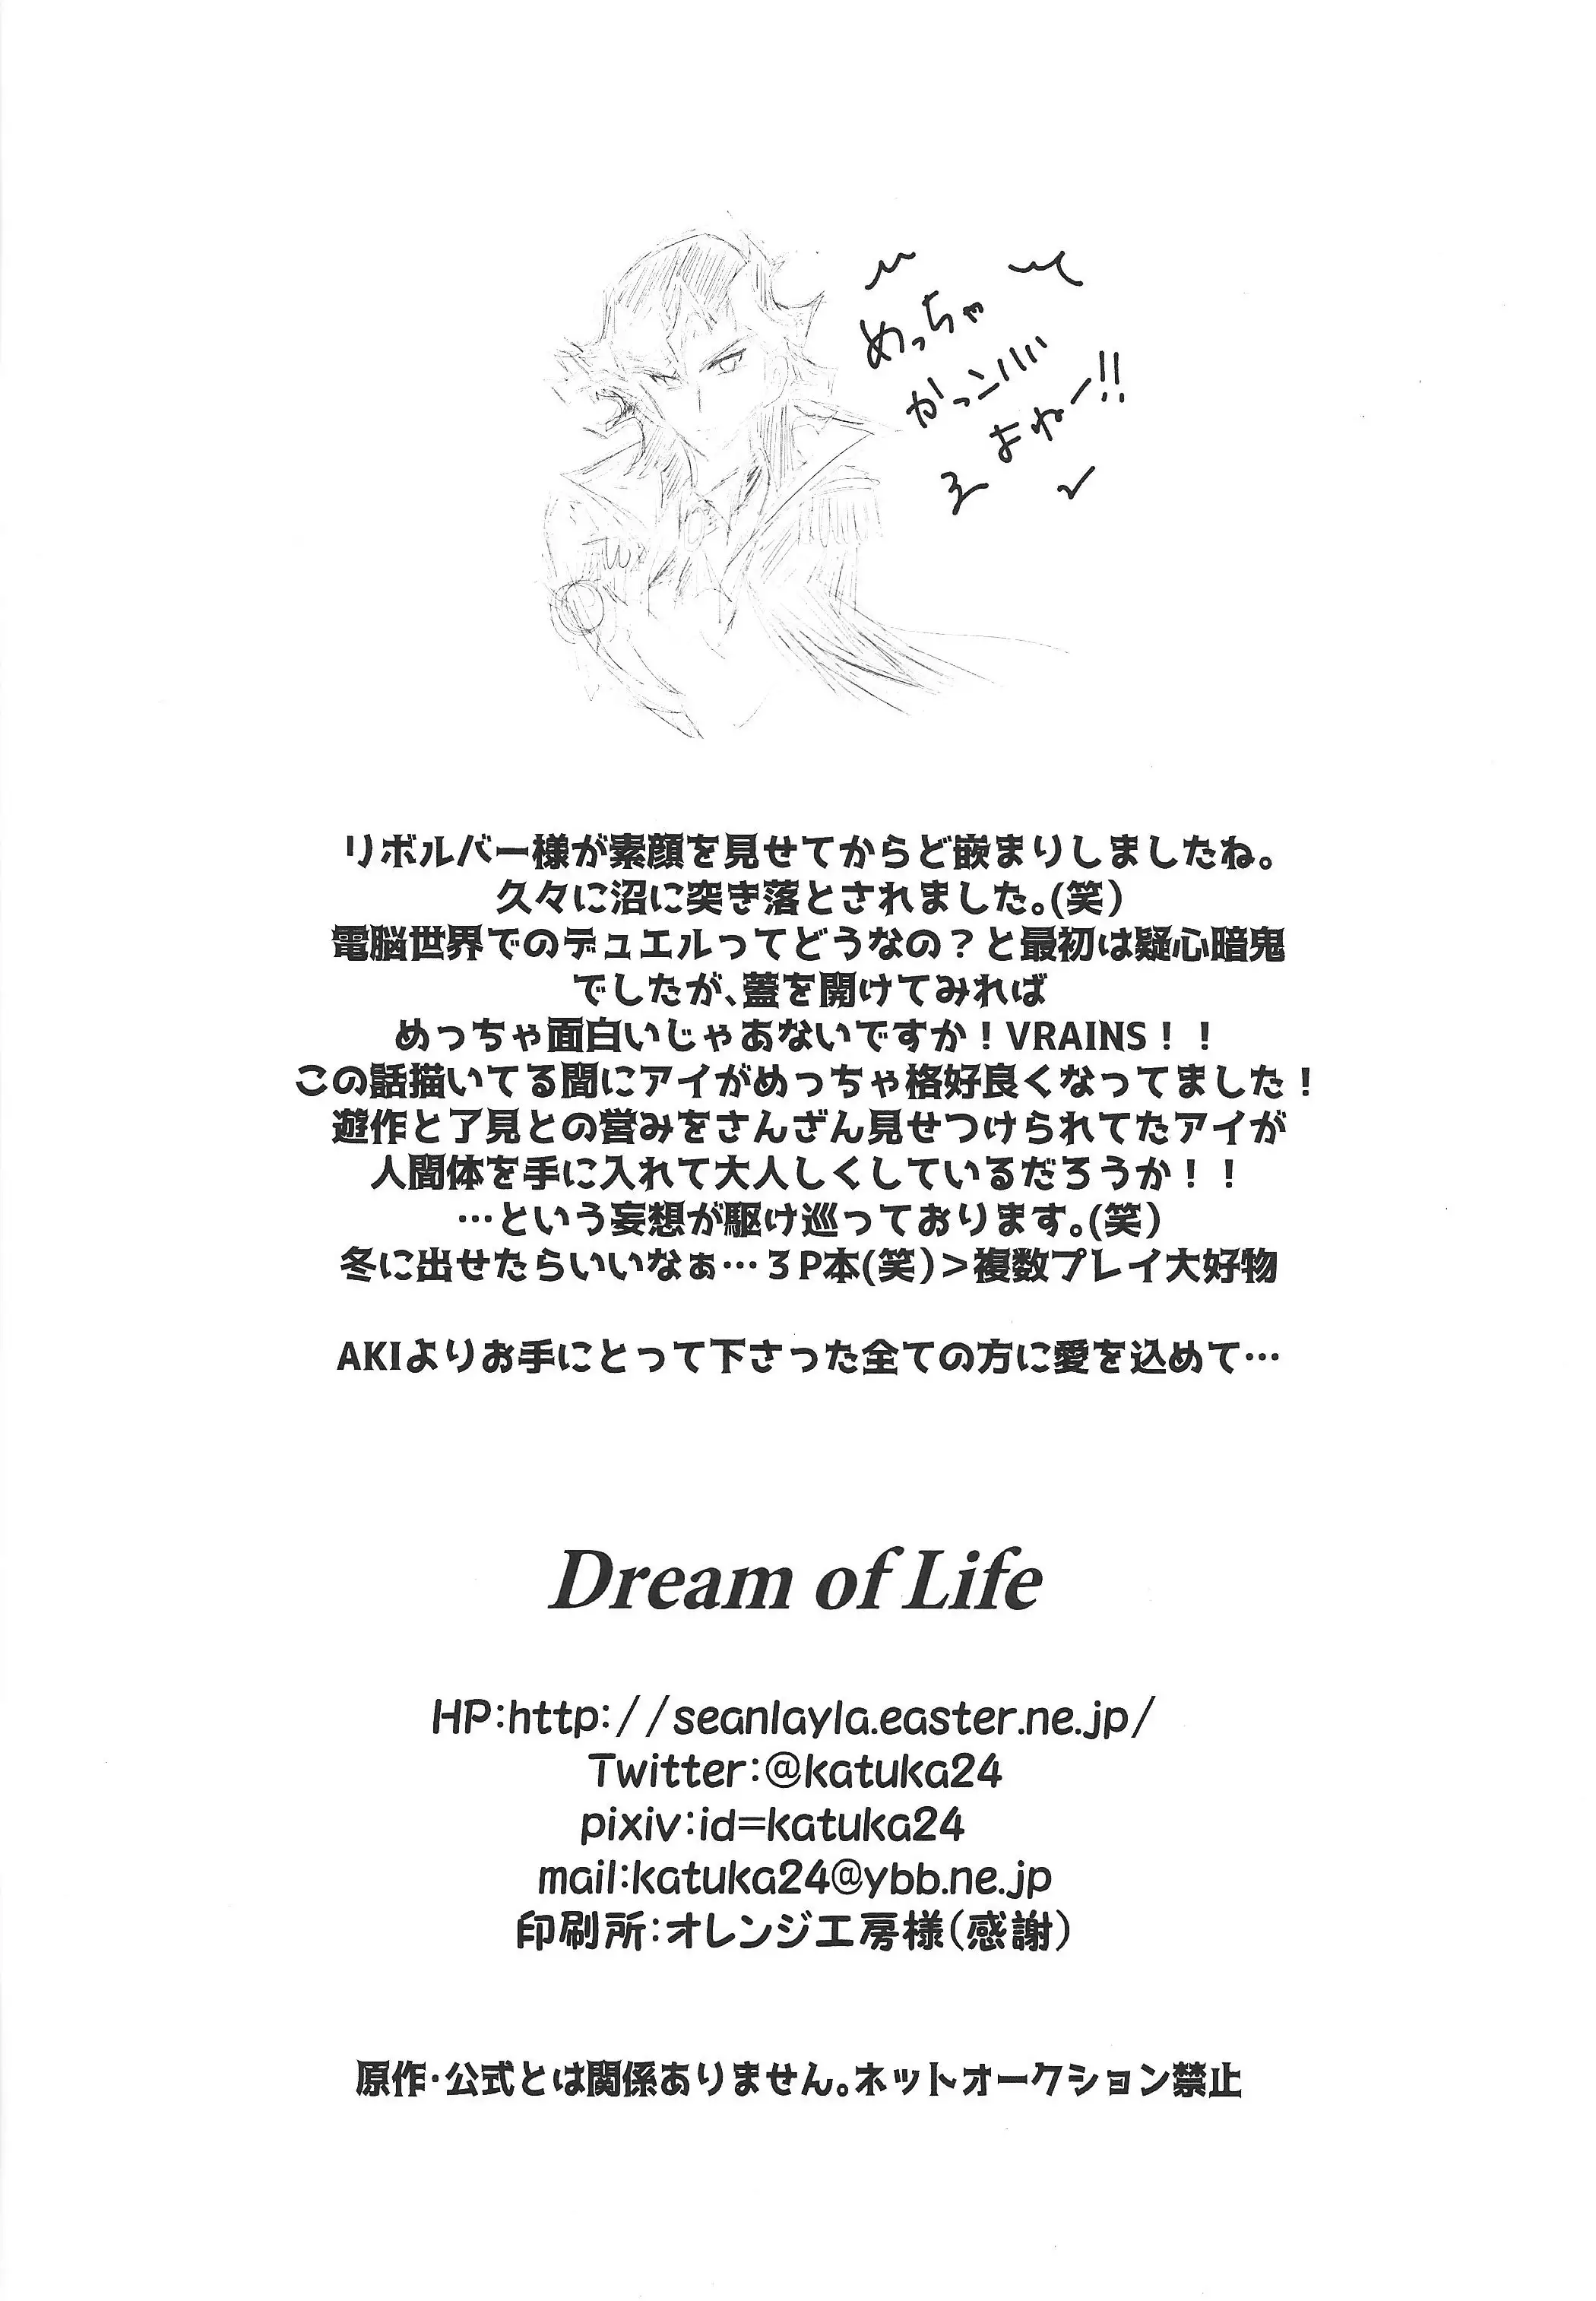 めっちゃ
かっこいい
よねー!!
リボルバー様が素顔を見せてからど嵌まりしましたね。
久々に沼に突き落とされました。(笑)
電脳世界でのデュエルってどうなの？と最初は疑心暗鬼
でしたが、蓋を開けてみれば
めっちゃ面白いじゃあないですか！VRAINS！！
この話描いてる間にアイがめっちゃ格好良くなってました！
遊作と了見との営みをさんざん見せつけられてたアイが
人間体を手に入れて大人しくしているだろうか！！
…という妄想が駆け巡っております。(笑)
冬に出せたらいいなぁ…３P本(笑)＞複数プレイ大好物
AKIよりお手にとって下さった全ての方に愛を込めて…
Dream of Life
HP:http://seanlayla.easter.ne.jp/
Twitter:@katuka24
pixiv:id=katuka24
mail:katuka24@ybb.ne.jp
印刷所:オレンジ工房様(感謝)
原作・公式とは関係ありません。ネットオークション禁止